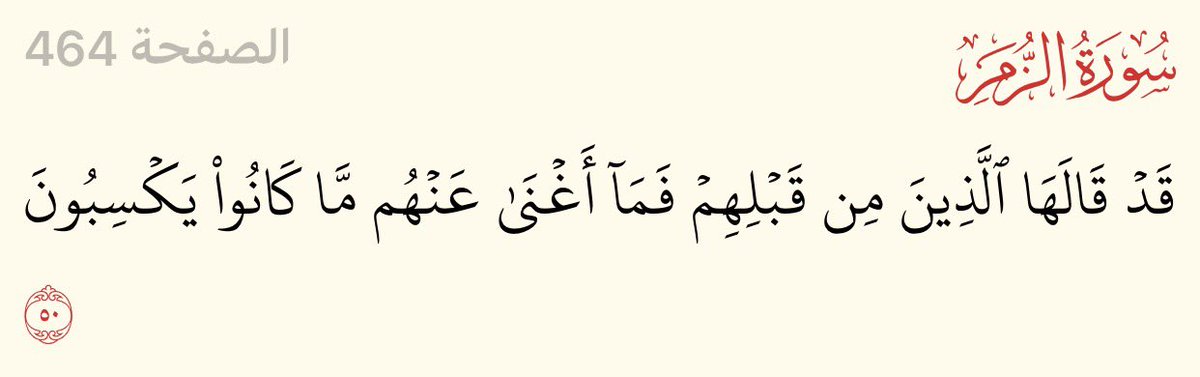 سُورَةُ الزُّمَرِ الصفحة 464
قَدۡ قَالَهَا ٱلَّذِينَ مِن قَبۡلِهِمۡ فَمَآ أَغۡنَىٰ عَنۡهُم مَّا كَانُواْ يَكۡسِبُونَ
٥٠